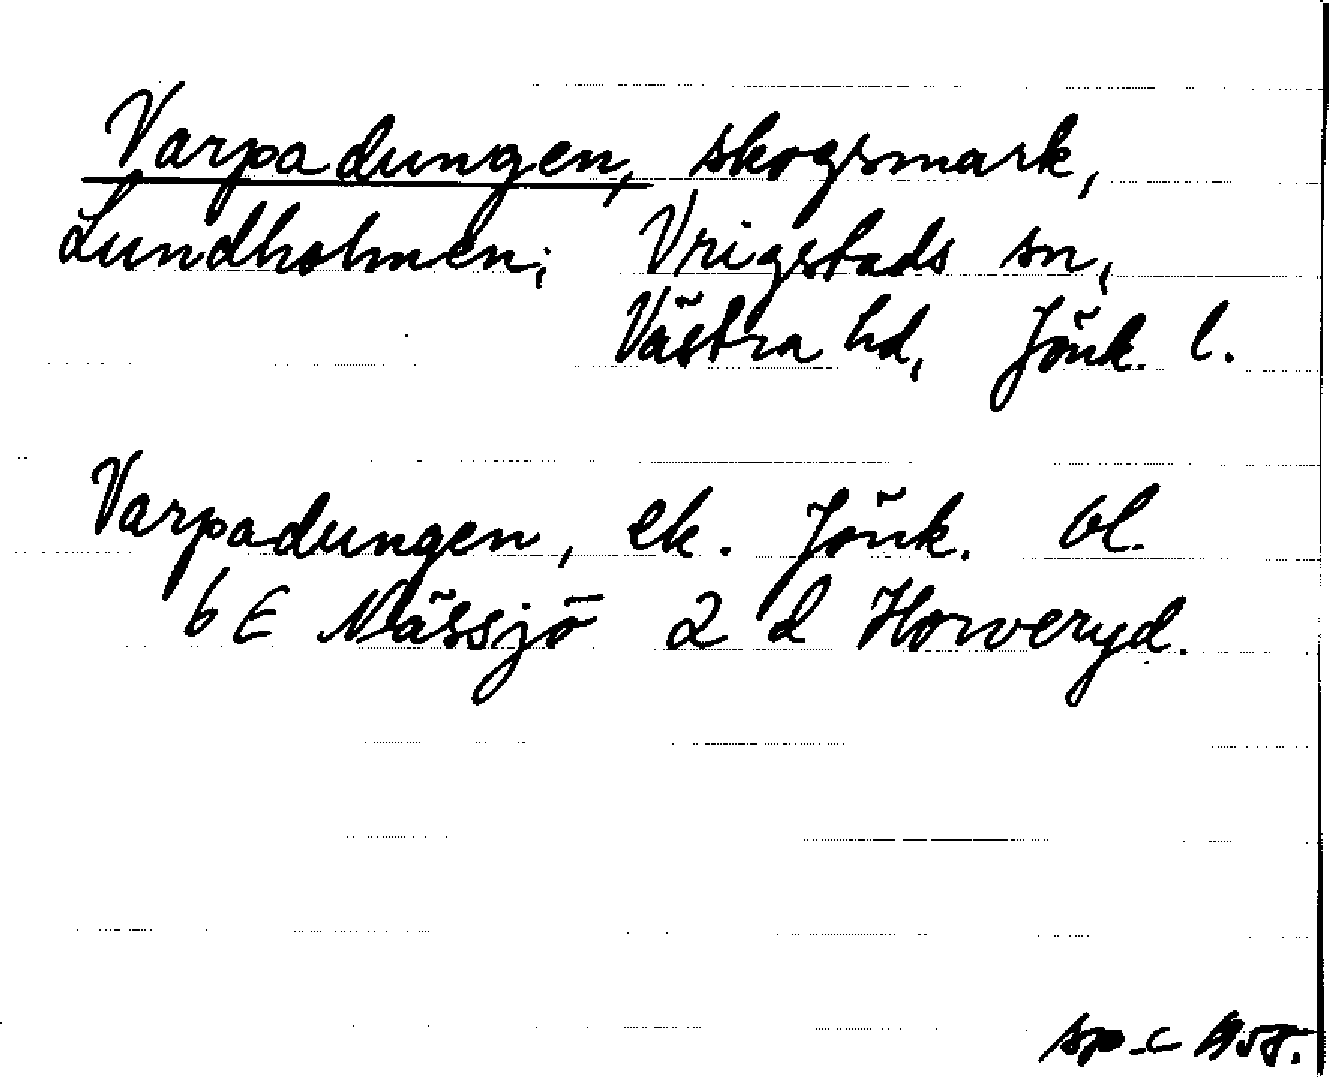 Varpadungen, skogsmark,
Lundholmen, Vrigstads sn,
Västra hd, Jönk. l.
Varpadungen, ek. Jönk. bl.
6 E Nässjö 2 d Horveryd.